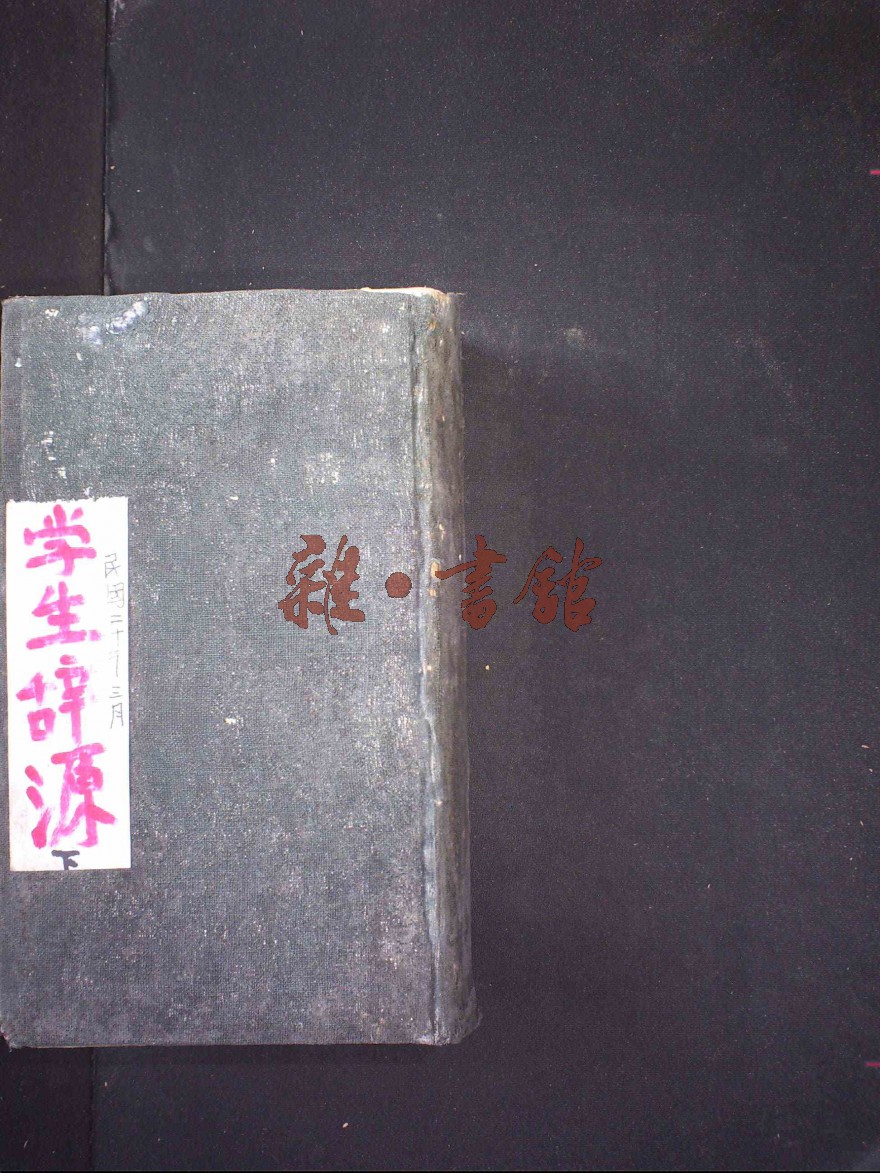 民國二十年三月
学生辞源
下
雜·書館